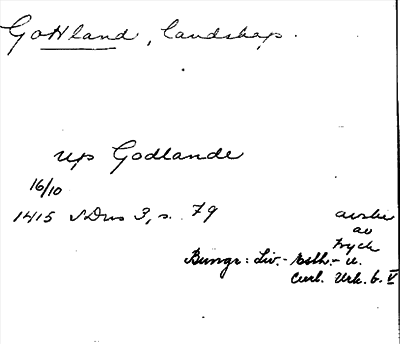 Gottland, landskap.
up Godlande
16/10
1415 SDns 3, s. 79
avskr
av
tryck
Bunge: Liv.- Esth.- u.
Curl. Urk. b. V